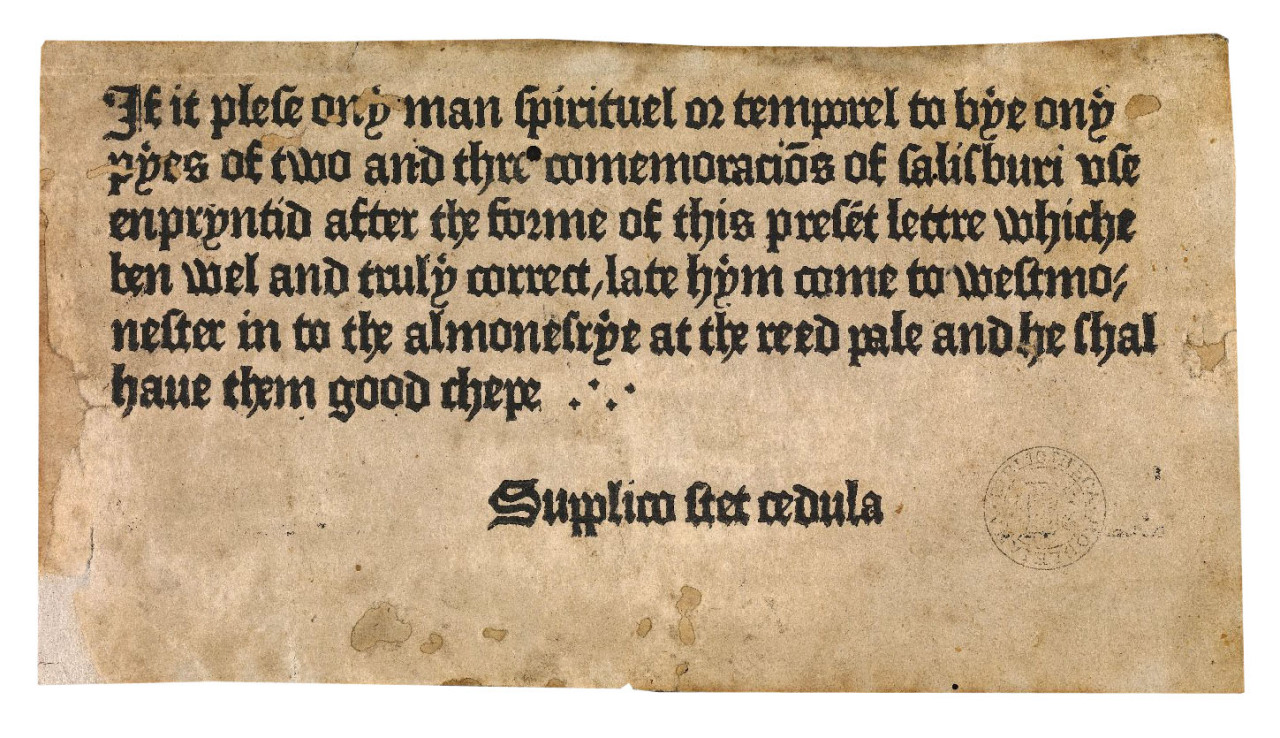 If it plese ony man spirituel or temporel to bye ony
pyes of two and thre comemoraciōs of salisburi vse
enpryntid after the forme of this presēt lettre whiche
ben wel and truly correct, late hym come to westmo⸗
nester in to the almonesrye at the reed pale and he shal
haue them good chepe
Supplico stet cedula